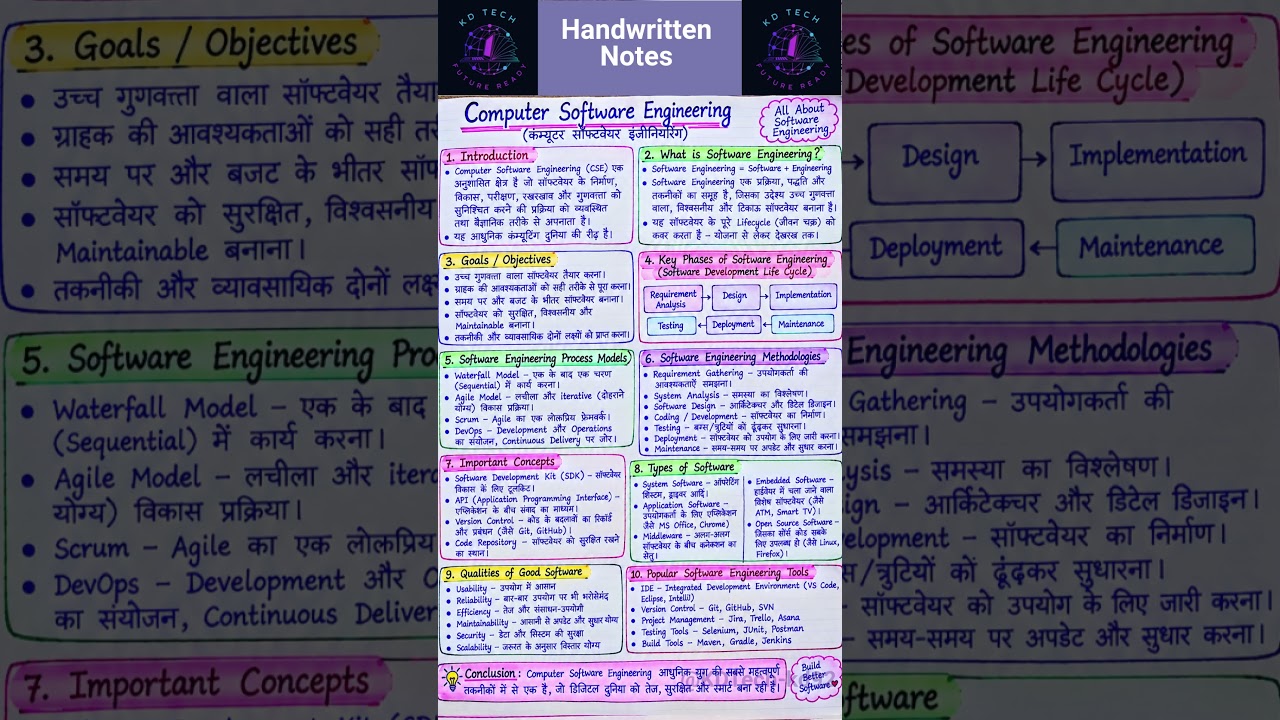 KD TECH
FUTURE READY
Handwritten
Notes
KD TECH
FUTURE READY
Computer Software Engineering
(कंम्यूटर सॉफ्टवेयर इंजीनियरिंग)
All About
Software
Engineering
1. Introduction
• Computer Software Engineering (CSE) एक
अनुशासित क्षेत्र है जो सॉफ्टवेयर के निर्माण,
विकास, परीक्षण, रखरखाव और गुणवत्ता को
सुनिश्चित करने की प्रक्रिया को व्यवस्थित
तथा वैज्ञानिक तरीके से अपनाता है।
• यह आधुनिक कंम्यूटिंग दुनिया की रीढ़ है।
2. What is Software Engineering?
• Software Engineering = Software + Engineering
• Software Engineering एक प्रक्रिया, पद्धति और
तकनीकों का समूह है, जिसका उद्देश्य उच्च गुणवत्ता
वाला, विश्वसनीय और टिकाऊ सॉफ्टवेयर बनाना है।
• यह सॉफ्टवेयर के पूरे Lifecycle (जीवन चक्र) को
कवर करता है – योजना से लेकर देखरख तक।
3. Goals / Objectives
• उच्च गुणवत्ता वाला सॉफ्टवेयर तैयार करना।
• ग्राहक की आवश्यकताओं को सही तरीके से पूरा करना।
• समय पर और बजट के भीतर सॉफ्टवेयर बनाना।
• सॉफ्टवेयर को सुरक्षित, विश्वसनीय और
Maintainable बनाना।
• तकनीकी और व्यावसायिक दोनों लक्ष्यों को प्राप्त करना।
4. Key Phases of Software Engineering
(Software Development Life Cycle)
Requirement
Analysis
Design
Implementation
Testing
Deployment
Maintenance
5. Software Engineering Process Models)
• Waterfall Model – एक के बाद एक चरण
(Sequential) में कार्य करना।
• Agile Model – लचीला और iterative (दोहराने
योग्य) विकास प्रक्रिया।
• Scrum – Agile का एक लोकप्रिय फ्रेमवर्क।
• DevOps – Development और Operations
का संयोजन, Continuous Delivery पर जोर।
6. Software Engineering Methodologies
• Requirement Gathering – उपयोगकर्ता की
आवश्यकताएँ समझना।
• System Analysis – समस्या का विश्लेषण।
• Software Design – आर्किटेक्चर और डिटेल डिजाइन।
• Coding / Development – सॉफ्टवेयर का निर्माण।
• Testing – बग्स/त्रुटियों कों ढूंढ़कर सुधारना।
• Deployment – सॉफ्टवेयर को उपयोग के लिए जारी करना।
• Maintenance – समय-समय पर अपडेट और सुधार करना।
7. Important Concepts
• Software Development Kit (SDK) – सॉफ्टवेयर
विकास के लिए टूलकिट।
• API (Application Programming Interface) –
एप्लिकेशन के बीच संवाद का माध्यम।
• Version Control – कोड के बदलावों का रिकॉर्ड
और प्रबंधन (जैसे Git, GitHub)।
• Code Repository – सॉफ्टवेयर को सुरक्षित रखने
का स्थान।
8. Types of Software
• System Software – ऑपरेटिंग
सिस्टम, ड्राइवर आदि।
• Application Software –
उपयोगकर्ता के लिए एप्लिकेशन
जैसे MS Office, Chrome)
• Middleware – अलग-अलग
सॉफ्टवेयर के बीच कनेक्शन का
सेतु।
• Embedded Software –
हार्डवेयर में चला जाने वाला
विशेष सॉफ्टवेयर (जैसे
ATM, Smart TV)।
• Open Source Software –
जिसका सोर्स कोड सबके
लिए उपलब्ध हो (जैसे Linux,
Firefox)।
9. Qualities of Good Software
• Usability – उपयोग में आसान
• Reliability – बार-बार उपयोग पर भी भरोसेमंद
• Efficiency – तेज और संसाधन-उपयोगी
• Maintainability – आसानी से अपडेट और सुधार योग्य
• Security – डेटा और सिस्टम की सुरक्षा
• Scalability – जरूरत के अनुसार विस्तार योग्य
10. Popular Software Engineering Tools
• IDE – Integrated Development Environment (VS Code,
Eclipse, IntelliJ)
• Version Control – Git, GitHub, SVN
• Project Management – Jira, Trello, Asana
• Testing Tools – Selenium, JUnit, Postman
• Build Tools – Maven, Gradle, Jenkins
Conclusion: Computer Software Engineering आधुनिक युग की सबसे महत्वपूर्ण
तकनीकों में से एक है, जो डिजिटल दुनिया को तेज, सुरक्षित और स्मार्ट बना रही है।
Build
Better
Software
3. Goals / Objectives
• उच्च गुणवत्ता वाला सॉफ्टवेयर
• ग्राहक की आवश्यकताओं को सही
• समय पर और बजट के भीतर
• सॉफ्टवेयर को सुरक्षित, विश्वसनीय
Maintainable बनाना।
• तकनीकी और व्यावसायिक दोनों
5. Software Engineering
• Waterfall Model – एक के बाद
(Sequential) में कार्य करना।
• Agile Model – लचीला और
योग्य) विकास प्रक्रिया।
• Scrum – Agile का एक लोकप्रिय
• DevOps – Development और
का संयोजन, Continuous
7. Important Concepts
of Software Engineering
Development Life Cycle)
Design
Implementation
Deployment
Maintenance
Engineering Methodologies
Gathering – उपयोगकर्ता की
समझना।
– समस्या का विश्लेषण।
– आर्किटेक्चर और डिटेल डिजाइन।
– सॉफ्टवेयर का निर्माण।
/त्रुटियों कों ढूंढ़कर सुधारना।
– सॉफ्टवेयर को उपयोग के लिए जारी करना।
– समय-समय पर अपडेट और सुधार करना।